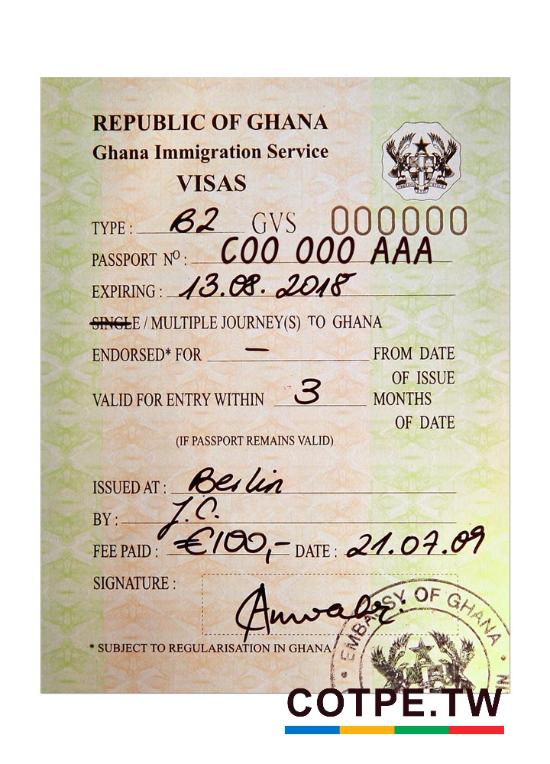 REPUBLIC OF GHANA
Ghana Immigration Service
VISAS
TYPE : B2 GVS 000000
PASSPORT Nº : C00 000 AAA
EXPIRING : 13.08.2018
SINGLE / MULTIPLE JOURNEY(S) TO GHANA
ENDORSED* FOR — FROM DATE
OF ISSUE
VALID FOR ENTRY WITHIN 3 MONTHS
OF DATE
(IF PASSPORT REMAINS VALID)
ISSUED AT : Berlin
BY : J.C.
FEE PAID : €100,- DATE : 21.07.09
SIGNATURE :
* SUBJECT TO REGULARISATION IN GHANA
EMBASSY OF GHANA
COTPE.TW